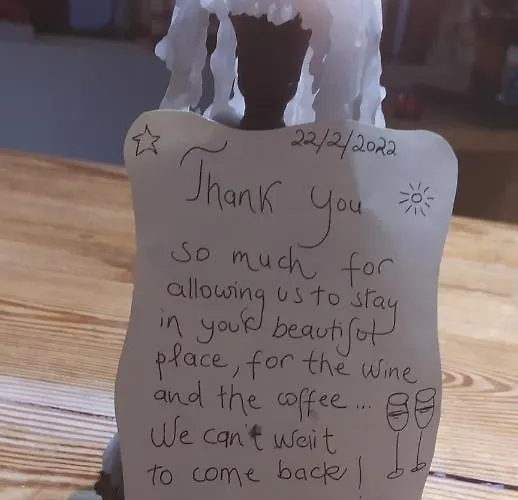 22/2/2022
Thank you
so much for
allowing us to stay
in your beautiful
place, for the wine
and the coffee...
We can't weiit
to come back!